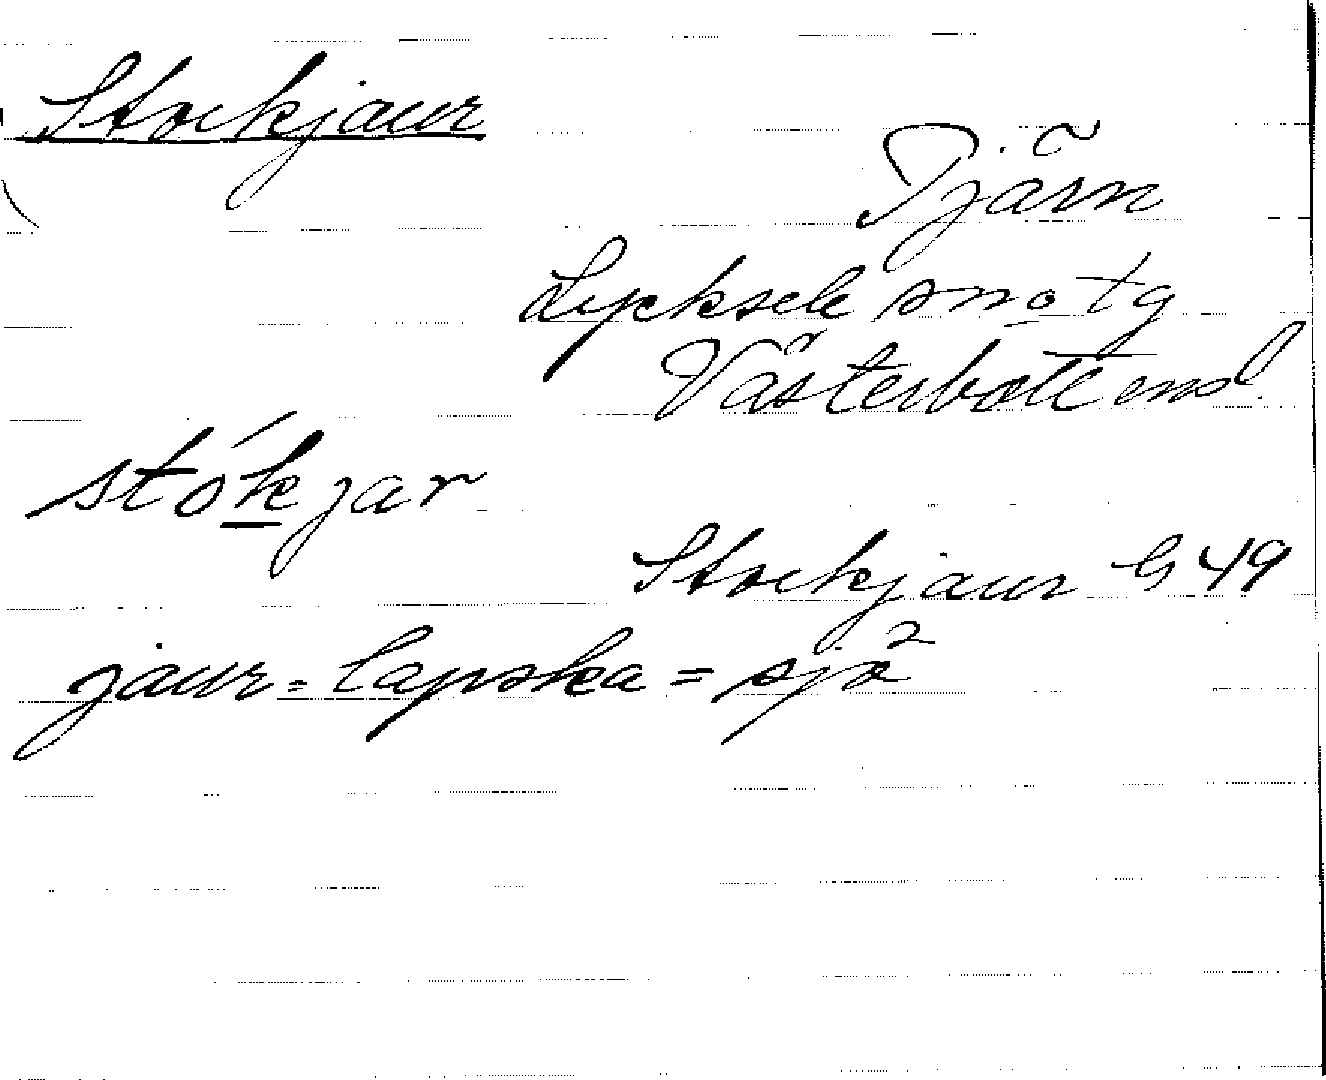 Stockjaur
Tjärn
Lycksele sn o tg
Västerbottens l.
stókjar
Stockjaur G 49
jaur = lapska = sjö